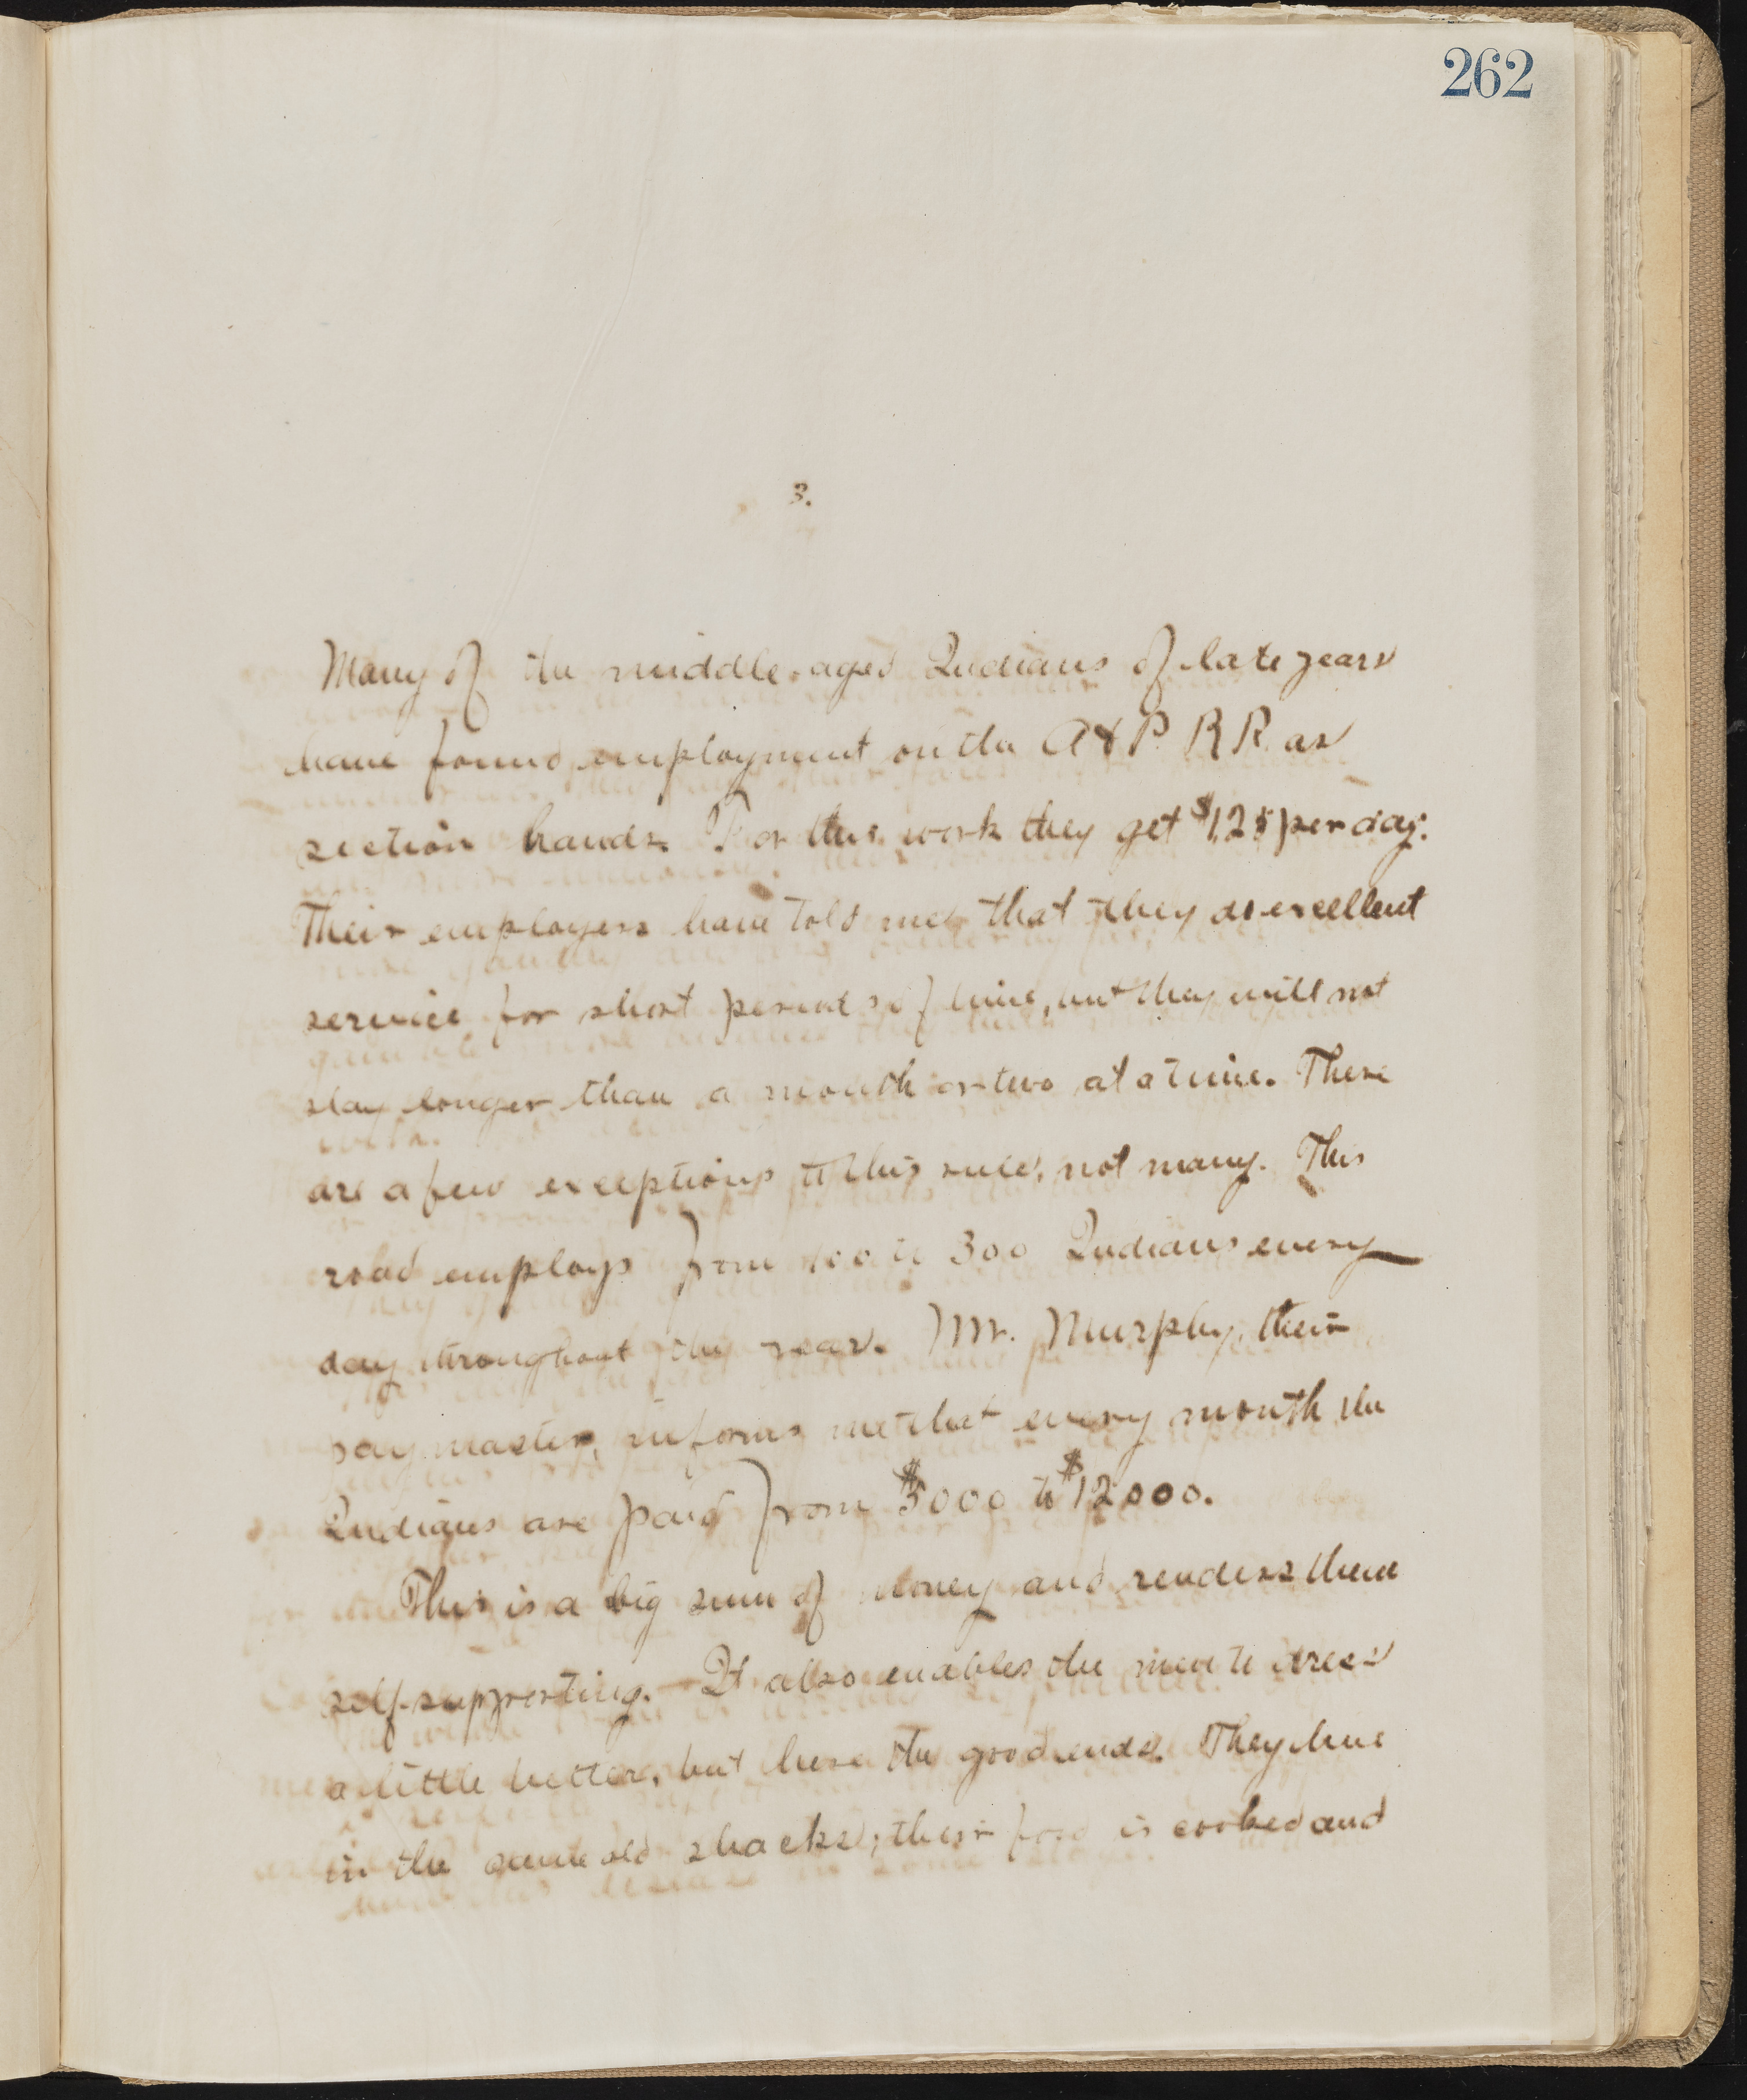 262
3.
Many of the middle-aged Indians of late years
have found employment on the A & P. R R. as
section hands. For this work they get $1.25 per day.
Their employers have told me that they do excellent
service for short periods of time, but they will not
stay longer than a month or two at a time. There
are a few exceptions to this rule, not many. This
road employs from 100 to 300 Indians every
day throughout the year. Mr. Murphy, their
paymaster, informs me that every month the
Indians are paid from $5000 to $12000.
This is a big sum of money and renders them
self-supporting. It also enables the men to dress
a little better, but here the good ends. They live
in the same old shacks; their food is cooked and